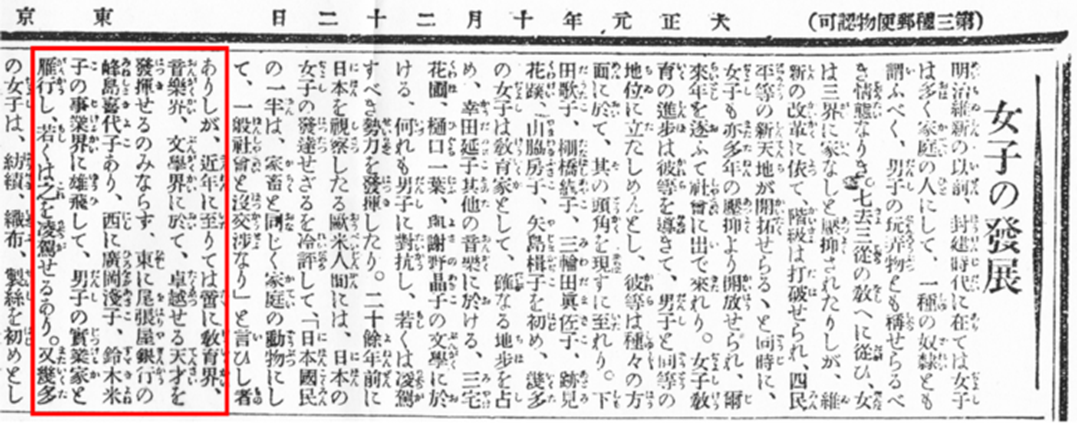 (第三種郵便物認可)
大正元年十月二十二日
東京
女子の發展
明治維新の以前、封建時代に在ては女子
は多く家庭の人にして、一種の奴隷とも
謂ふべく、男子の玩弄物とも稱せらるべ
き情態なりき。七去三從の敎へに從ひ、女
は三界に家なしと壓抑されたりしが、維
新の改革に依て、階級は打破せられ、四民
平等の新天地が開拓せらるゝと同時に、
女子も亦多年の壓抑より開放せられ、爾
來年を逐ふて社會に出で來れり。女子敎
育の進步は彼等を導きて、男子と同等の
地位に立たしめんとし、彼等は種々の方
面に於て、其の頭角を現すに至れり。下
田歌子、棚橋絢子、三輪田眞佐子、跡見
花蹊、山脇房子、矢島楫子を初め、幾多
の女子は敎育家として、確なる地步を占
め、幸田延子其他の音樂に於ける、三宅
花圃、樋口一葉、與謝野晶子の文學に於
ける、何れも男子に對抗し、若くは凌駕
すべき勢力を發揮したり。二十餘年前に
日本を視察したる歐米人間には、日本の
女子の發達せざるを冷評して、「日本國民
の一半は、家畜と同じく家庭の動物にし
て、一般社會と沒交渉なり」と言ひし者
ありしが、近年に至りては啻に敎育界、
音樂界、文學界に於て、卓越せる天才を
發揮せるのみならず、東に尾張屋銀行の
峰島嘉代子あり、西に廣岡淺子、鈴木米
子の事業界に雄飛して、男子の實業家と
雁行し、若くは之を凌駕せるあり。又幾多
の女子は、紡績、織布、製絲を初めとし